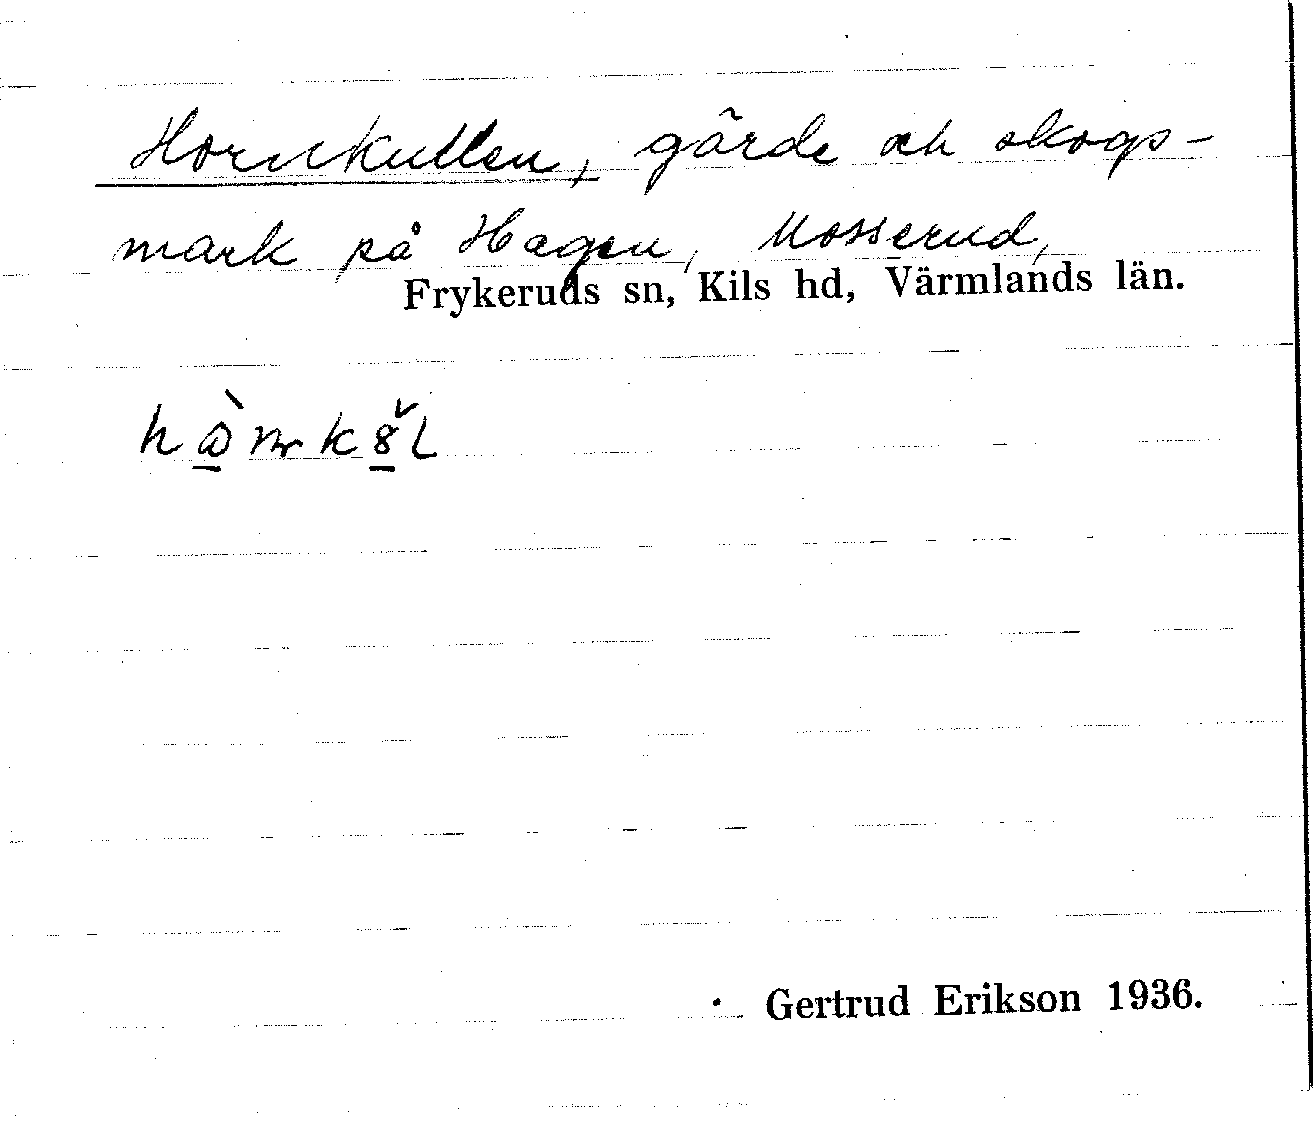 Hornkullen, gärde och skogs-
mark på Hagen, Mosserud,
Frykeruds sn, Kils hd, Värmlands län.
Gertrud Erikson 1936.